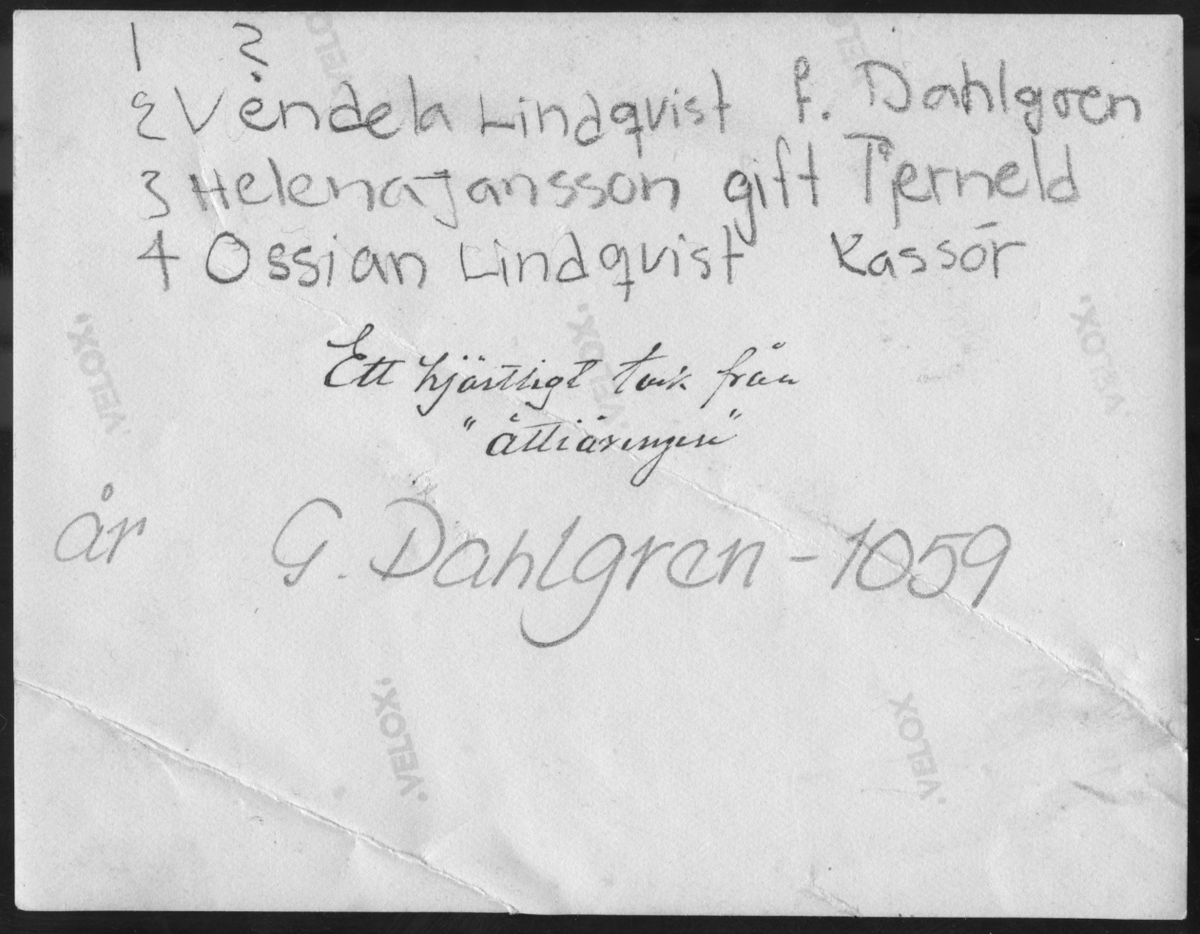 1 ?
2 Vendela Lindquist f. Dahlgren
3 Helena Jansson gift Tjerneld
4 Ossian Lindquist Kassör
Ett hjärtligt tack från
"åttiåringen"
år G. Dahlgren - 1059
VELOX
VELOX
VELOX
VELOX
VELOX
VELOX
VELOX